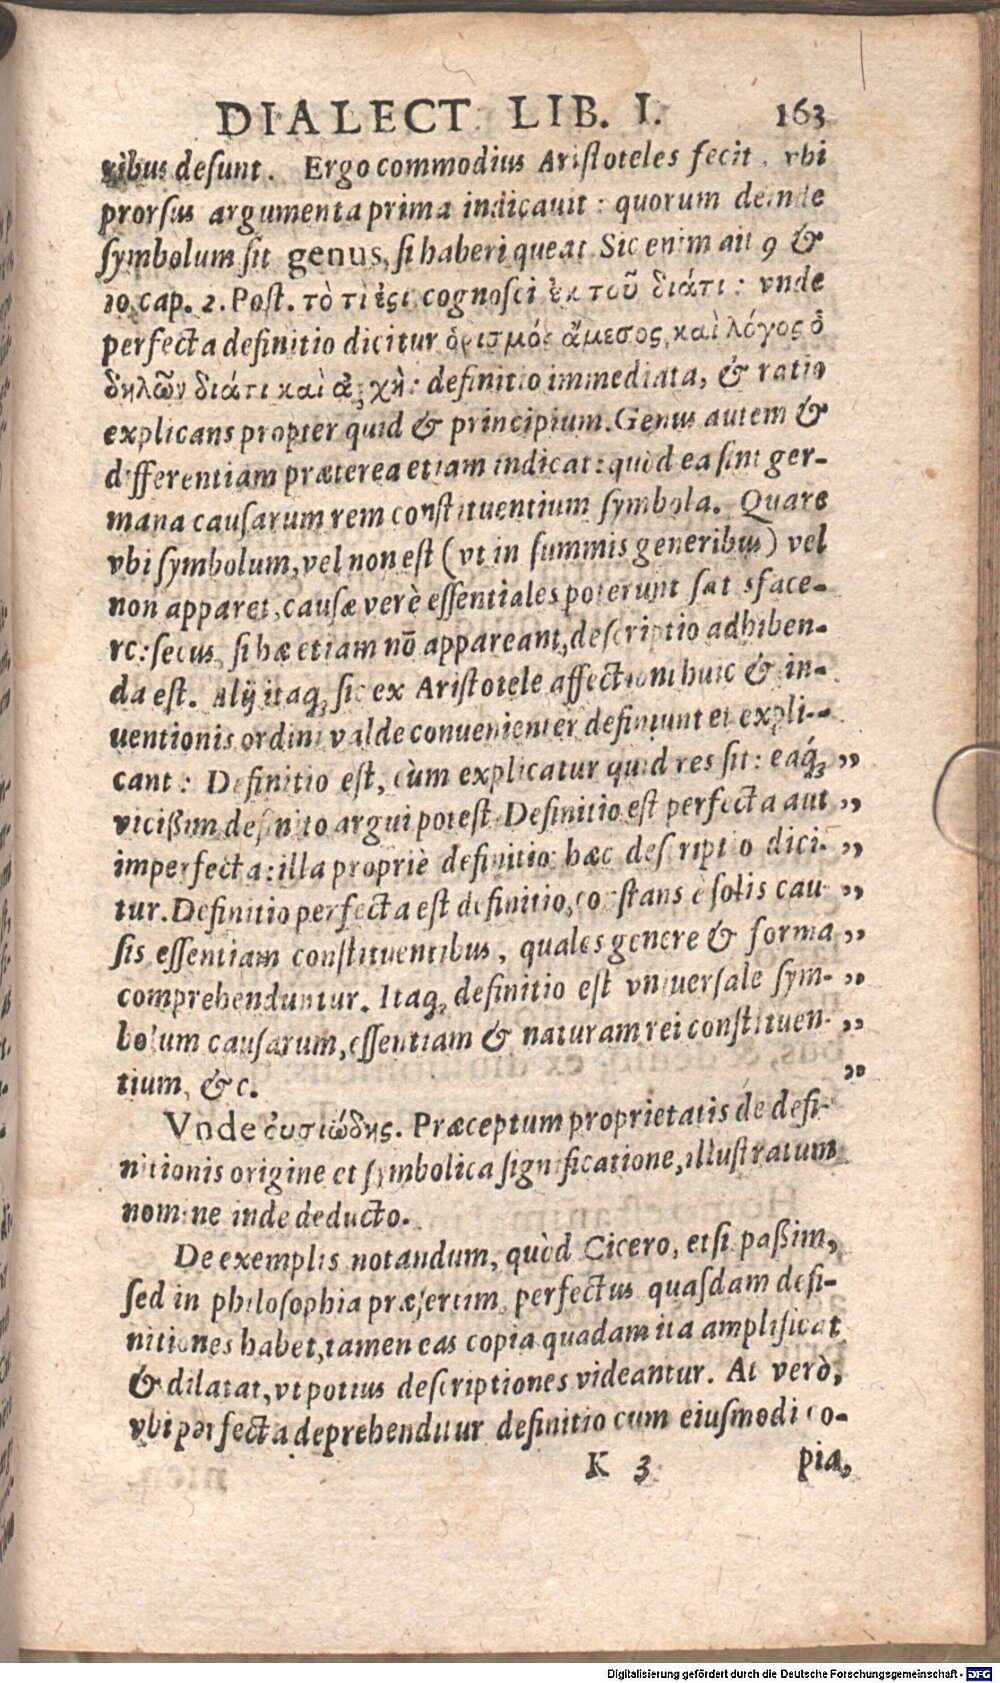 DIALECT. LIB. I. 163
ribus desunt. Ergo commodius Aristoteles fecit, vbi
prorsus argumenta prima indicauit: quorum deinde
symbolum sit genus, si haberi queat. Sic enim ait 9 &
10 cap. 2. Post. τὸ τὶ ἐςι cognosci ἐκ τοῦ διάτι: vnde
perfecta definitio dicitur ὁρισμός ἄμεσος, καὶ λόγος ὁ
δηλῶν διάτι καὶ ἀρχὴ: definitio immediata, & ratio
explicans propter quid & principium. Genus autem &
differentiam præterea etiam indicat: quòd ea sint ger-
mana causarum rem constituentium symbola. Quare
vbi symbolum, vel non est (vt in summis generibus) vel
non apparet, causæ verè essentiales poterunt satisface-
re: secus, si hæ etiam nō appareant, descriptio adhiben-
da est. Alij itaq; sic ex Aristotele affectioni huic & in-
uentionis ordini valde conuenienter definiunt et expli-
cant: Definitio est, cùm explicatur quid res sit: eaq́; „
vicißim definito argui potest. Definitio est perfecta aut „
imperfecta: illa propriè definitio: hæc descriptio dici- „
tur. Definitio perfecta est definitio, constans è solis cau- „
sis essentiam constituentibus, quales genere & forma „
comprehenduntur. Itaq; definitio est vniuersale sym- „
bolum causarum, essentiam & naturam rei constituen- „
tium, &c. „
Vnde ὀυσιώδης. Præceptum proprietatis de defi-
nitionis origine et symbolica significatione, illustratum
nomine inde deducto.
De exemplis notandum, quòd Cicero, etsi paßim,
sed in philosophia præsertim, perfectus quasdam defi-
nitiones habet, tamen eas copia quadam ita amplificat
& dilatat, vt potius descriptiones videantur. At verò,
vbi perfecta deprehenditur definitio cum eiusmodi co-
K 3 pia,
Digitalisierung gefördert durch die Deutsche Forschungsgemeinschaft - DFG